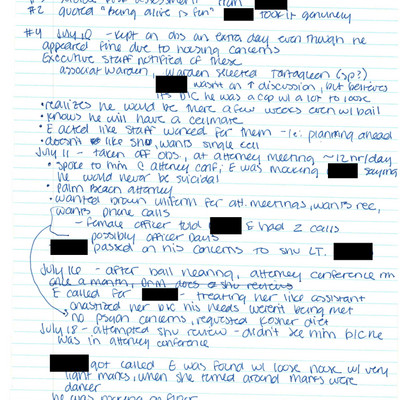 #2 quoted "Being alive is fun" took it genuinely
#4 July 10 - kept on obs an extra day even though he
appeared fine due to housing concerns
Executive staff notified of these
associate warden, warden selected Tartaglion (sp?)
wasn't on ↑ discussion, but believes
it's b/c he was a cop w/ a lot to lose
• realizes he would be there a few weeks even w/ bail
• knows he will have a cellmate
• E acted like staff worked for them - i.e. planning ahead
• doesn't like shu, wants single cell
July 11 - taken off obs, at attorney meeting ~12 hr/day
• spoke to him @ attorney conf; E was mocking saying
he would never be suicidal
• Palm Beach attorney
• wanted brown uniform for att. meetings, wants rec,
wants phone calls
- female officer told E had 2 calls
possibly officer Davis
passed on his concerns to SHU LT.
July 16 - after bail hearing, attorney conference rm
once a month, does shu reviews
E called for - treating her like assistant
chastized her b/c his needs weren't being met
no psych concerns, requested kosher diet
July 18 - attempted shu review - didn't see him b/c he
was in attorney conference
got called E was found w/ loose noose w/ very
light marks, when she turned around marks were
darker
he was on floor